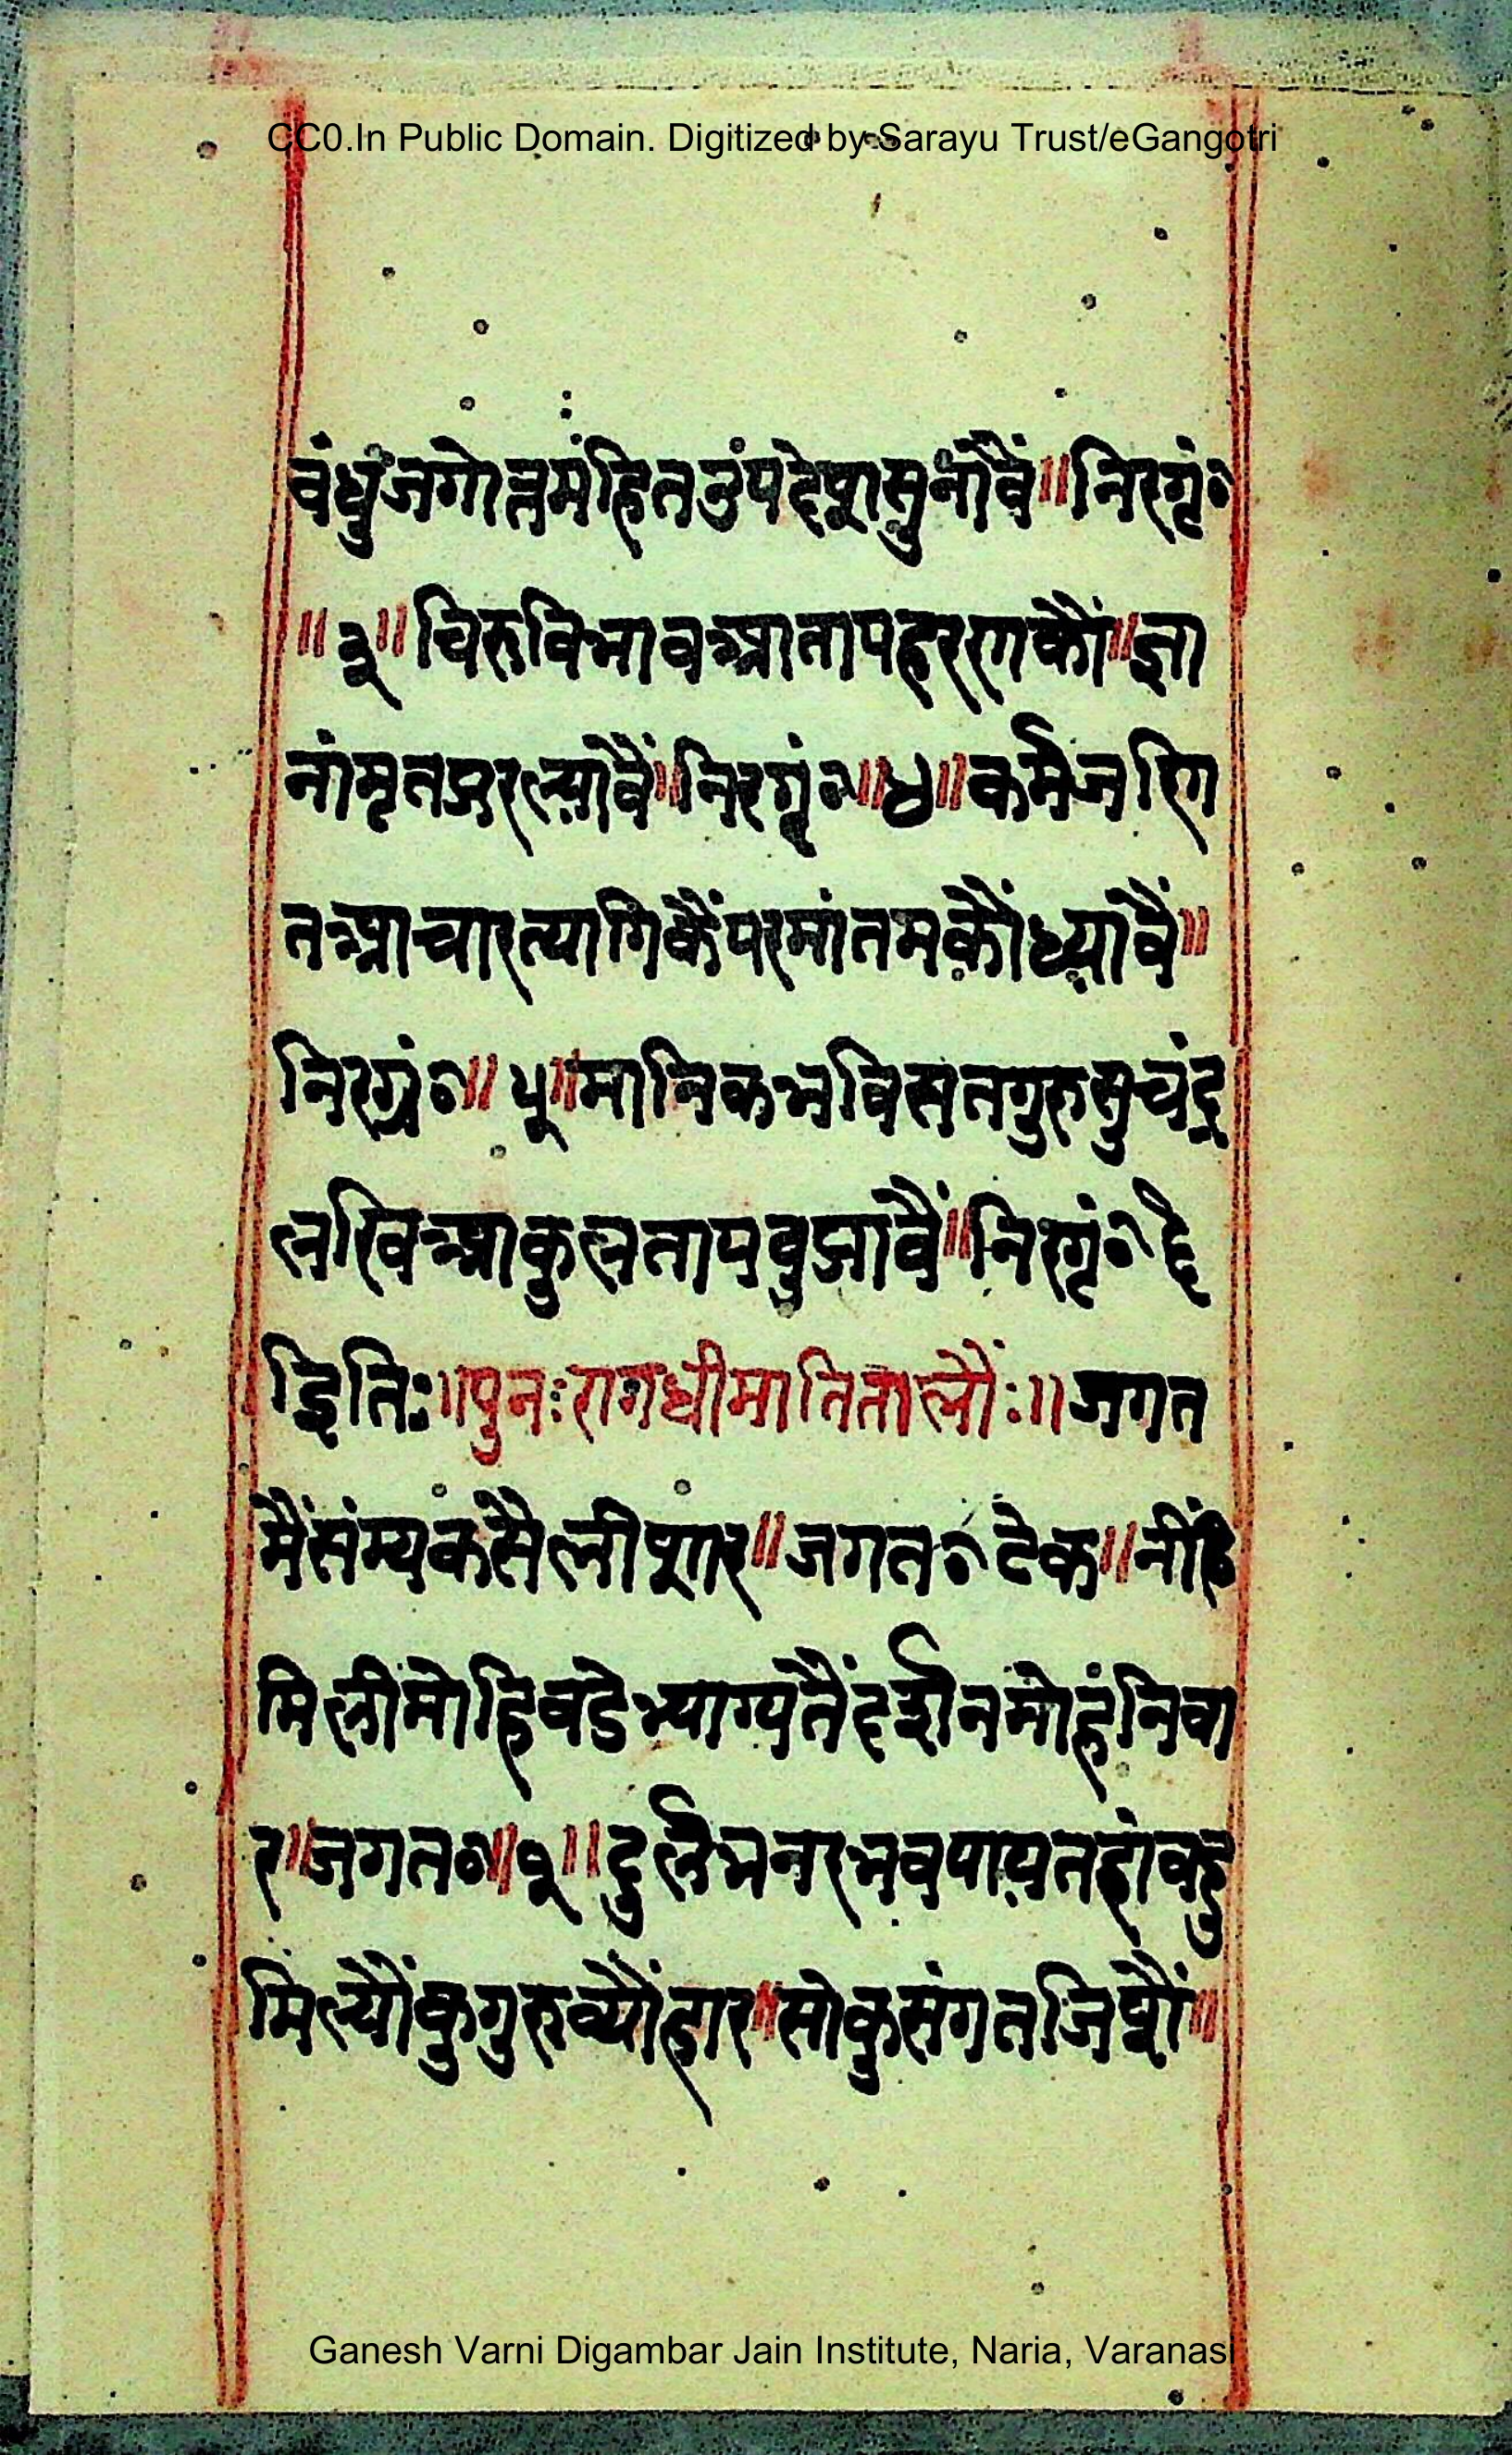 CC0.In Public Domain. Digitized by Sarayu Trust/eGangotri
वंधुंजगोत्तमंहितनुंपदेषासुनांवैं॥निरग्रं०
॥३॥चिरुविभावआतापहरणकौं॥ज्ञा
नांमृतऊरल्यावैं॥निरग्रं०॥४॥कर्मजरिग
तआचारत्यागिकैंपरमांतमकौंध्यावैं॥
निरग्रं०॥५॥मानिकभविसतगुरुसुचंद्र
लखिआकुलतापवुझावैं॥निरग्रं०६
इतिः॥पुनःरागधीमातितालौंः॥जगत
मैंसंम्यकसैलीषार॥जगत०टेक॥नींठि
मिलीमोहिवडेभ्याग्यतैंदर्शनमोहंनिवा
र॥जगत०॥१॥दुर्लभनरभवपायतहांवहु
मिल्यौंकुगुरुव्यौंहार॥सोकुसंगतजिषौं॥
Ganesh Varni Digambar Jain Institute, Naria, Varanasi